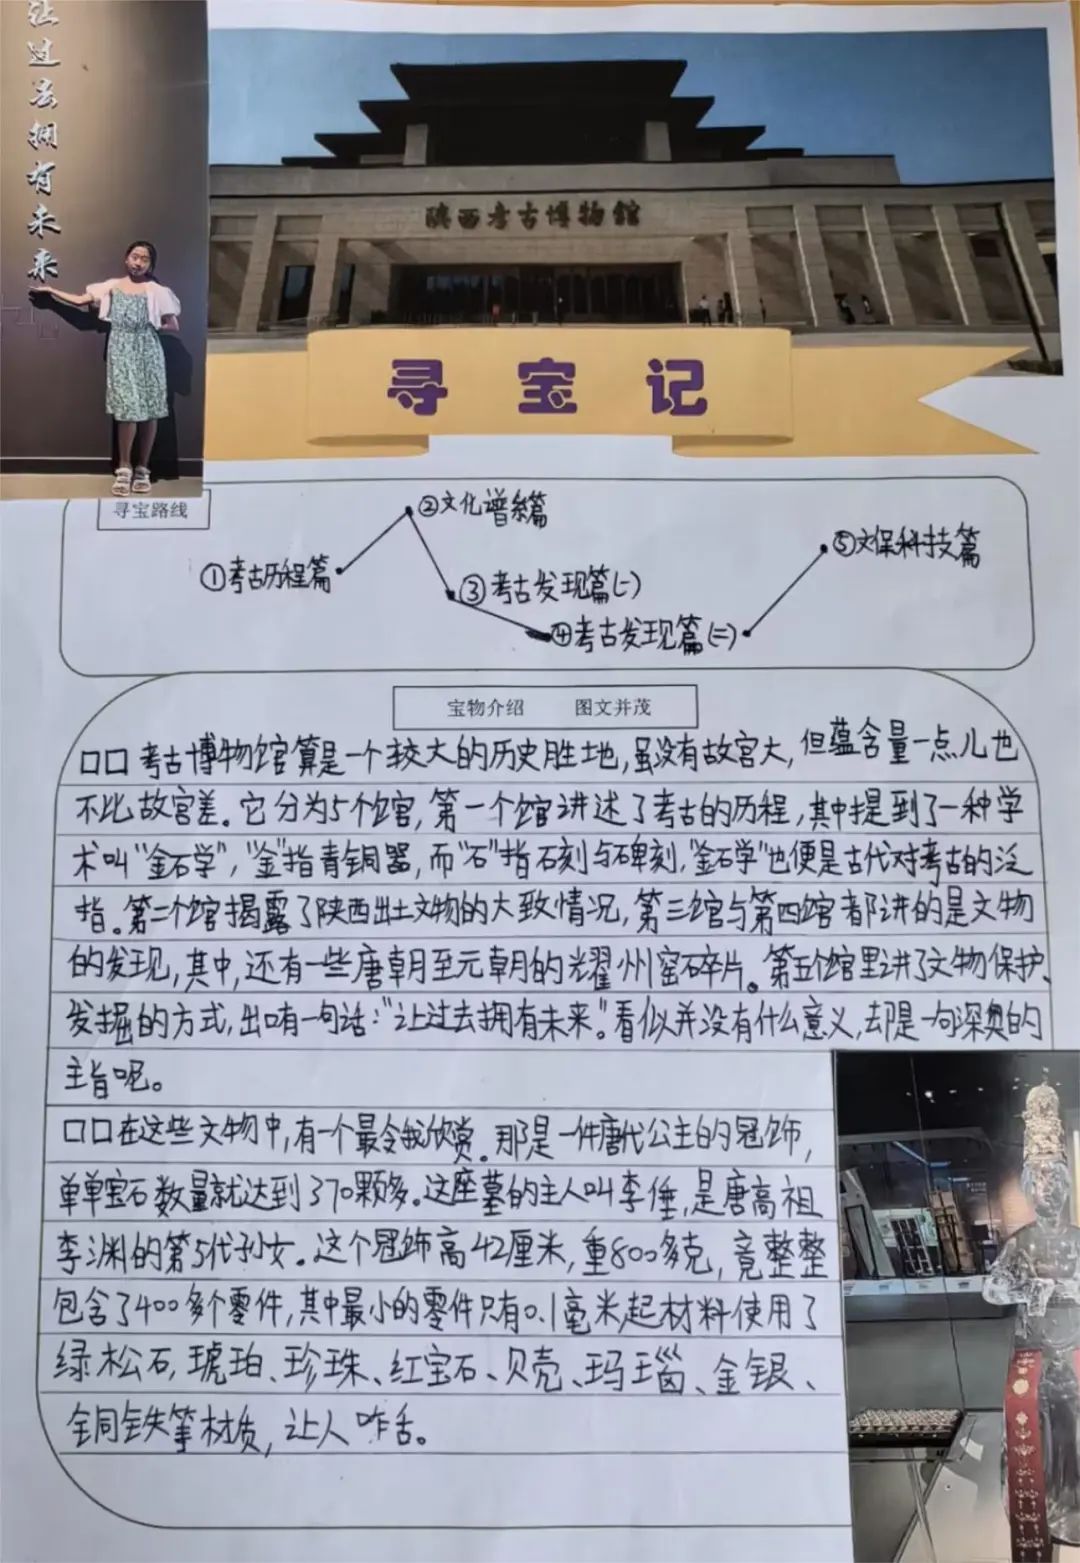 让过去拥有未来
陕西考古博物馆
寻宝记
寻宝路线
①考古历程篇
②文化谱系篇
③考古发现篇(一)
④考古发现篇(二)
⑤文保科技篇
宝物介绍 图文并茂
口口考古博物馆算是一个较大的历史胜地,虽没有故宫大,但蕴含量一点儿也
不比故宫差。它分为5个馆宫,第一个馆讲述了考古的历程,其中提到了一种学
术叫“金石学”,“金”指青铜器,而“石”指石刻与碑刻,“金石学”也便是古代对考古的泛
指。第二个馆揭露了陕西出土文物的大致情况,第三馆与第四馆都讲的是文物
的发现,其中,还有一些唐朝至元朝的耀州窑碎片。第五个馆里讲了文物保护、
发掘的方式,出口有一句话:“让过去拥有未来。”看似并没有什么意义,却是一句深奥的
主旨呢。
口口在这些文物中,有一个最令我欣赏。那是一件唐代公主的冠饰,
单单宝石数量就达到370颗多。这座墓的主人叫李倕,是唐高祖
李渊的第5代孙女。这个冠饰高42厘米,重800多克,竟整整
包含了400多个零件,其中最小的零件只有0.1毫米,起材料使用了
绿松石,琥珀、珍珠、红宝石、贝壳、玛瑙、金银、
铜铁等材质,让人咋舌。